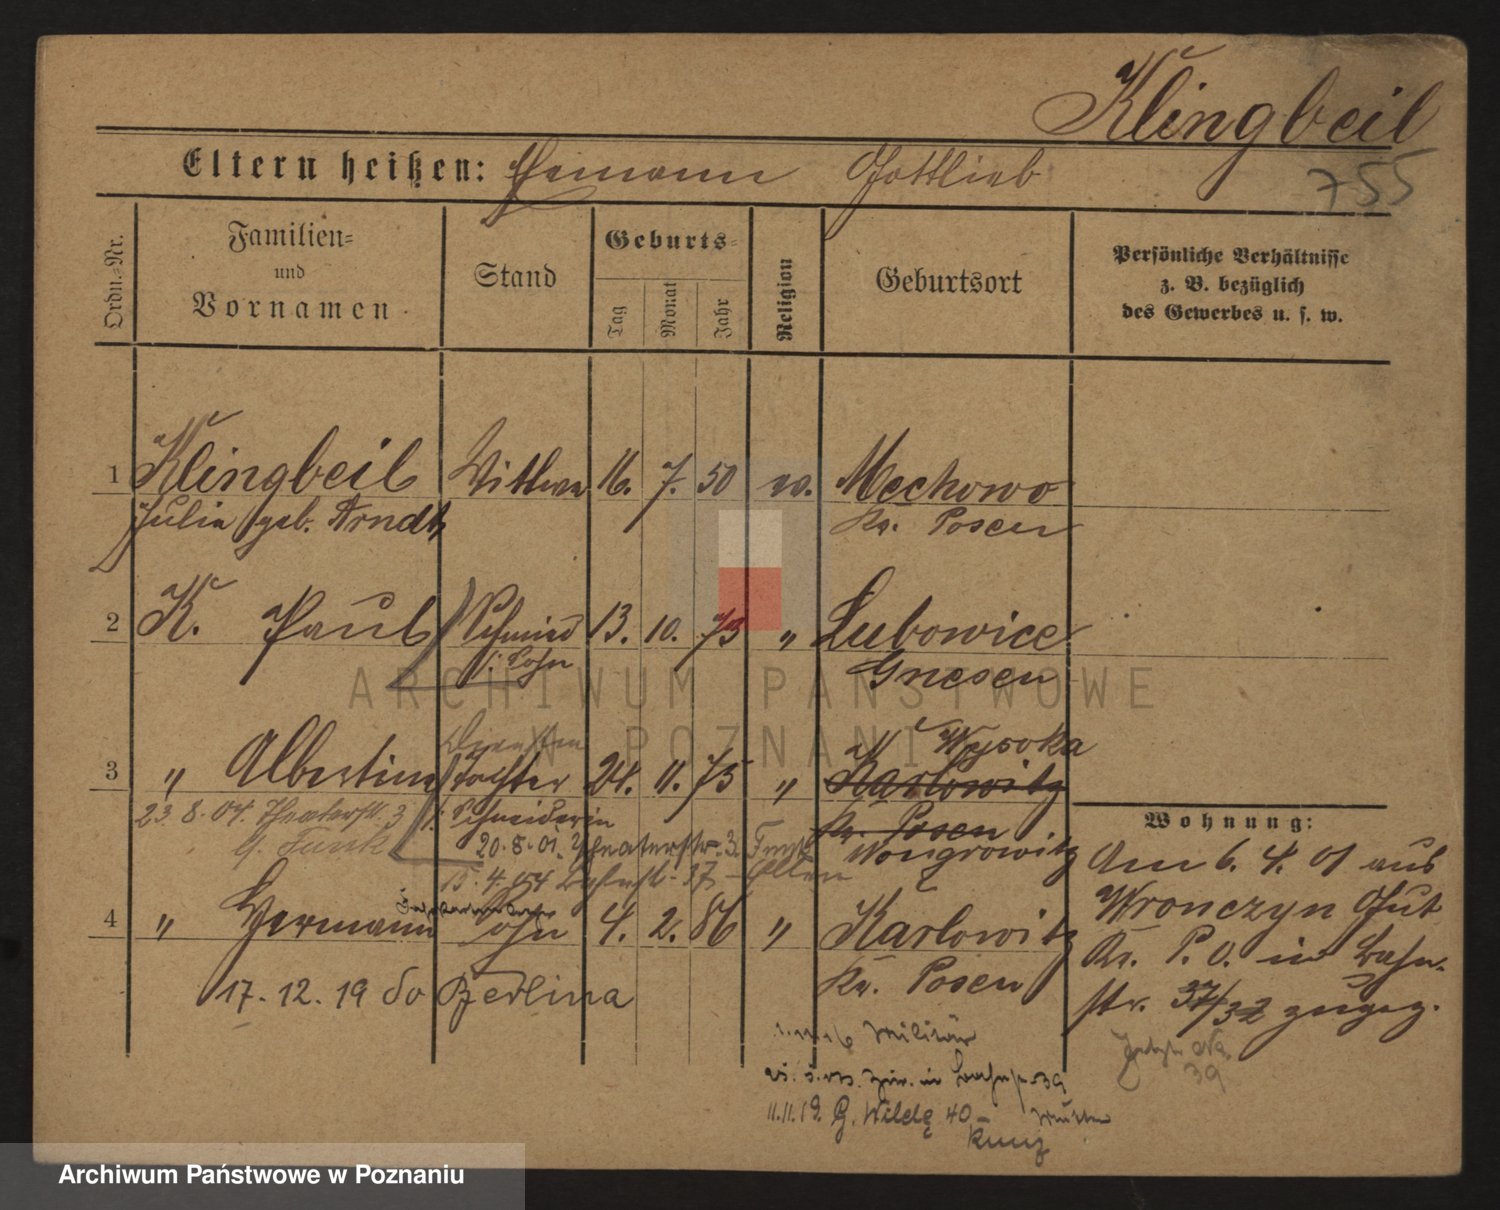 Klingbeil
755
Eltern heißen: Hermann Gottlieb
Ordn.-Nr.
Familien-
und
Vornamen
Stand
Geburts-
Tag
Monat
Jahr
Religion
Geburtsort
Persönliche Verhältnisse
z. B. bezüglich
des Gewerbes u. s. w.
1 Klingbeil Wittwe 16. 7. 50 ev. Mechowo
Julie geb. Arndt Kr. Posen
2 K. Paul Schmied 13. 10. 73 " Lubowice
Sohn Gnesen
Wysoka
3 " Albertine Tochter 24. 11. 75 " Karlowitz
23.8.04. Theaterstr. 3 Schneiderin Kr. Posen
b. Funk 20.8.01. Theaterstr. 3. Wongrowitz
15.4.04 Bahnstr. 37 - Eltern
4 " Hermann Sohn 4. 2. 86 " Karlowitz
17. 12. 19 do Berlina Kr. Posen
Wohnung:
Am 6. 4. 01 aus
Wronczyn Gut
Kr. P. O. in Bahn-
str. 37/32 zugez.
39
Militär
zur. in Bahnstr. 39
11.11.19. G. Wildę 40 - Mutter
ARCHIWUM PAŃSTWOWE
W POZNANIU
Archiwum Państwowe w Poznaniu